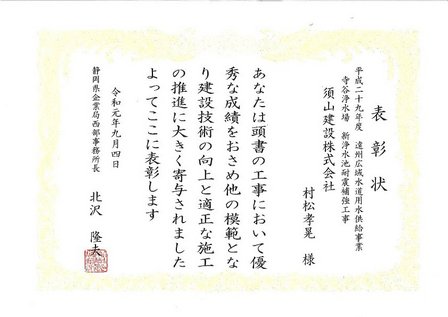 表彰状
平成二十九年度 遠州広域水道用水供給事業
寺谷浄水場 新浄水池耐震補強工事
須山建設株式会社
村松孝晃 様
あなたは頭書の工事において優
秀な成績をおさめ他の模範とな
り建設技術の向上と適正な施工
の推進に大きく寄与されました
よってここに表彰します
令和元年九月四日
静岡県企業局西部事務所長 北沢 隆夫